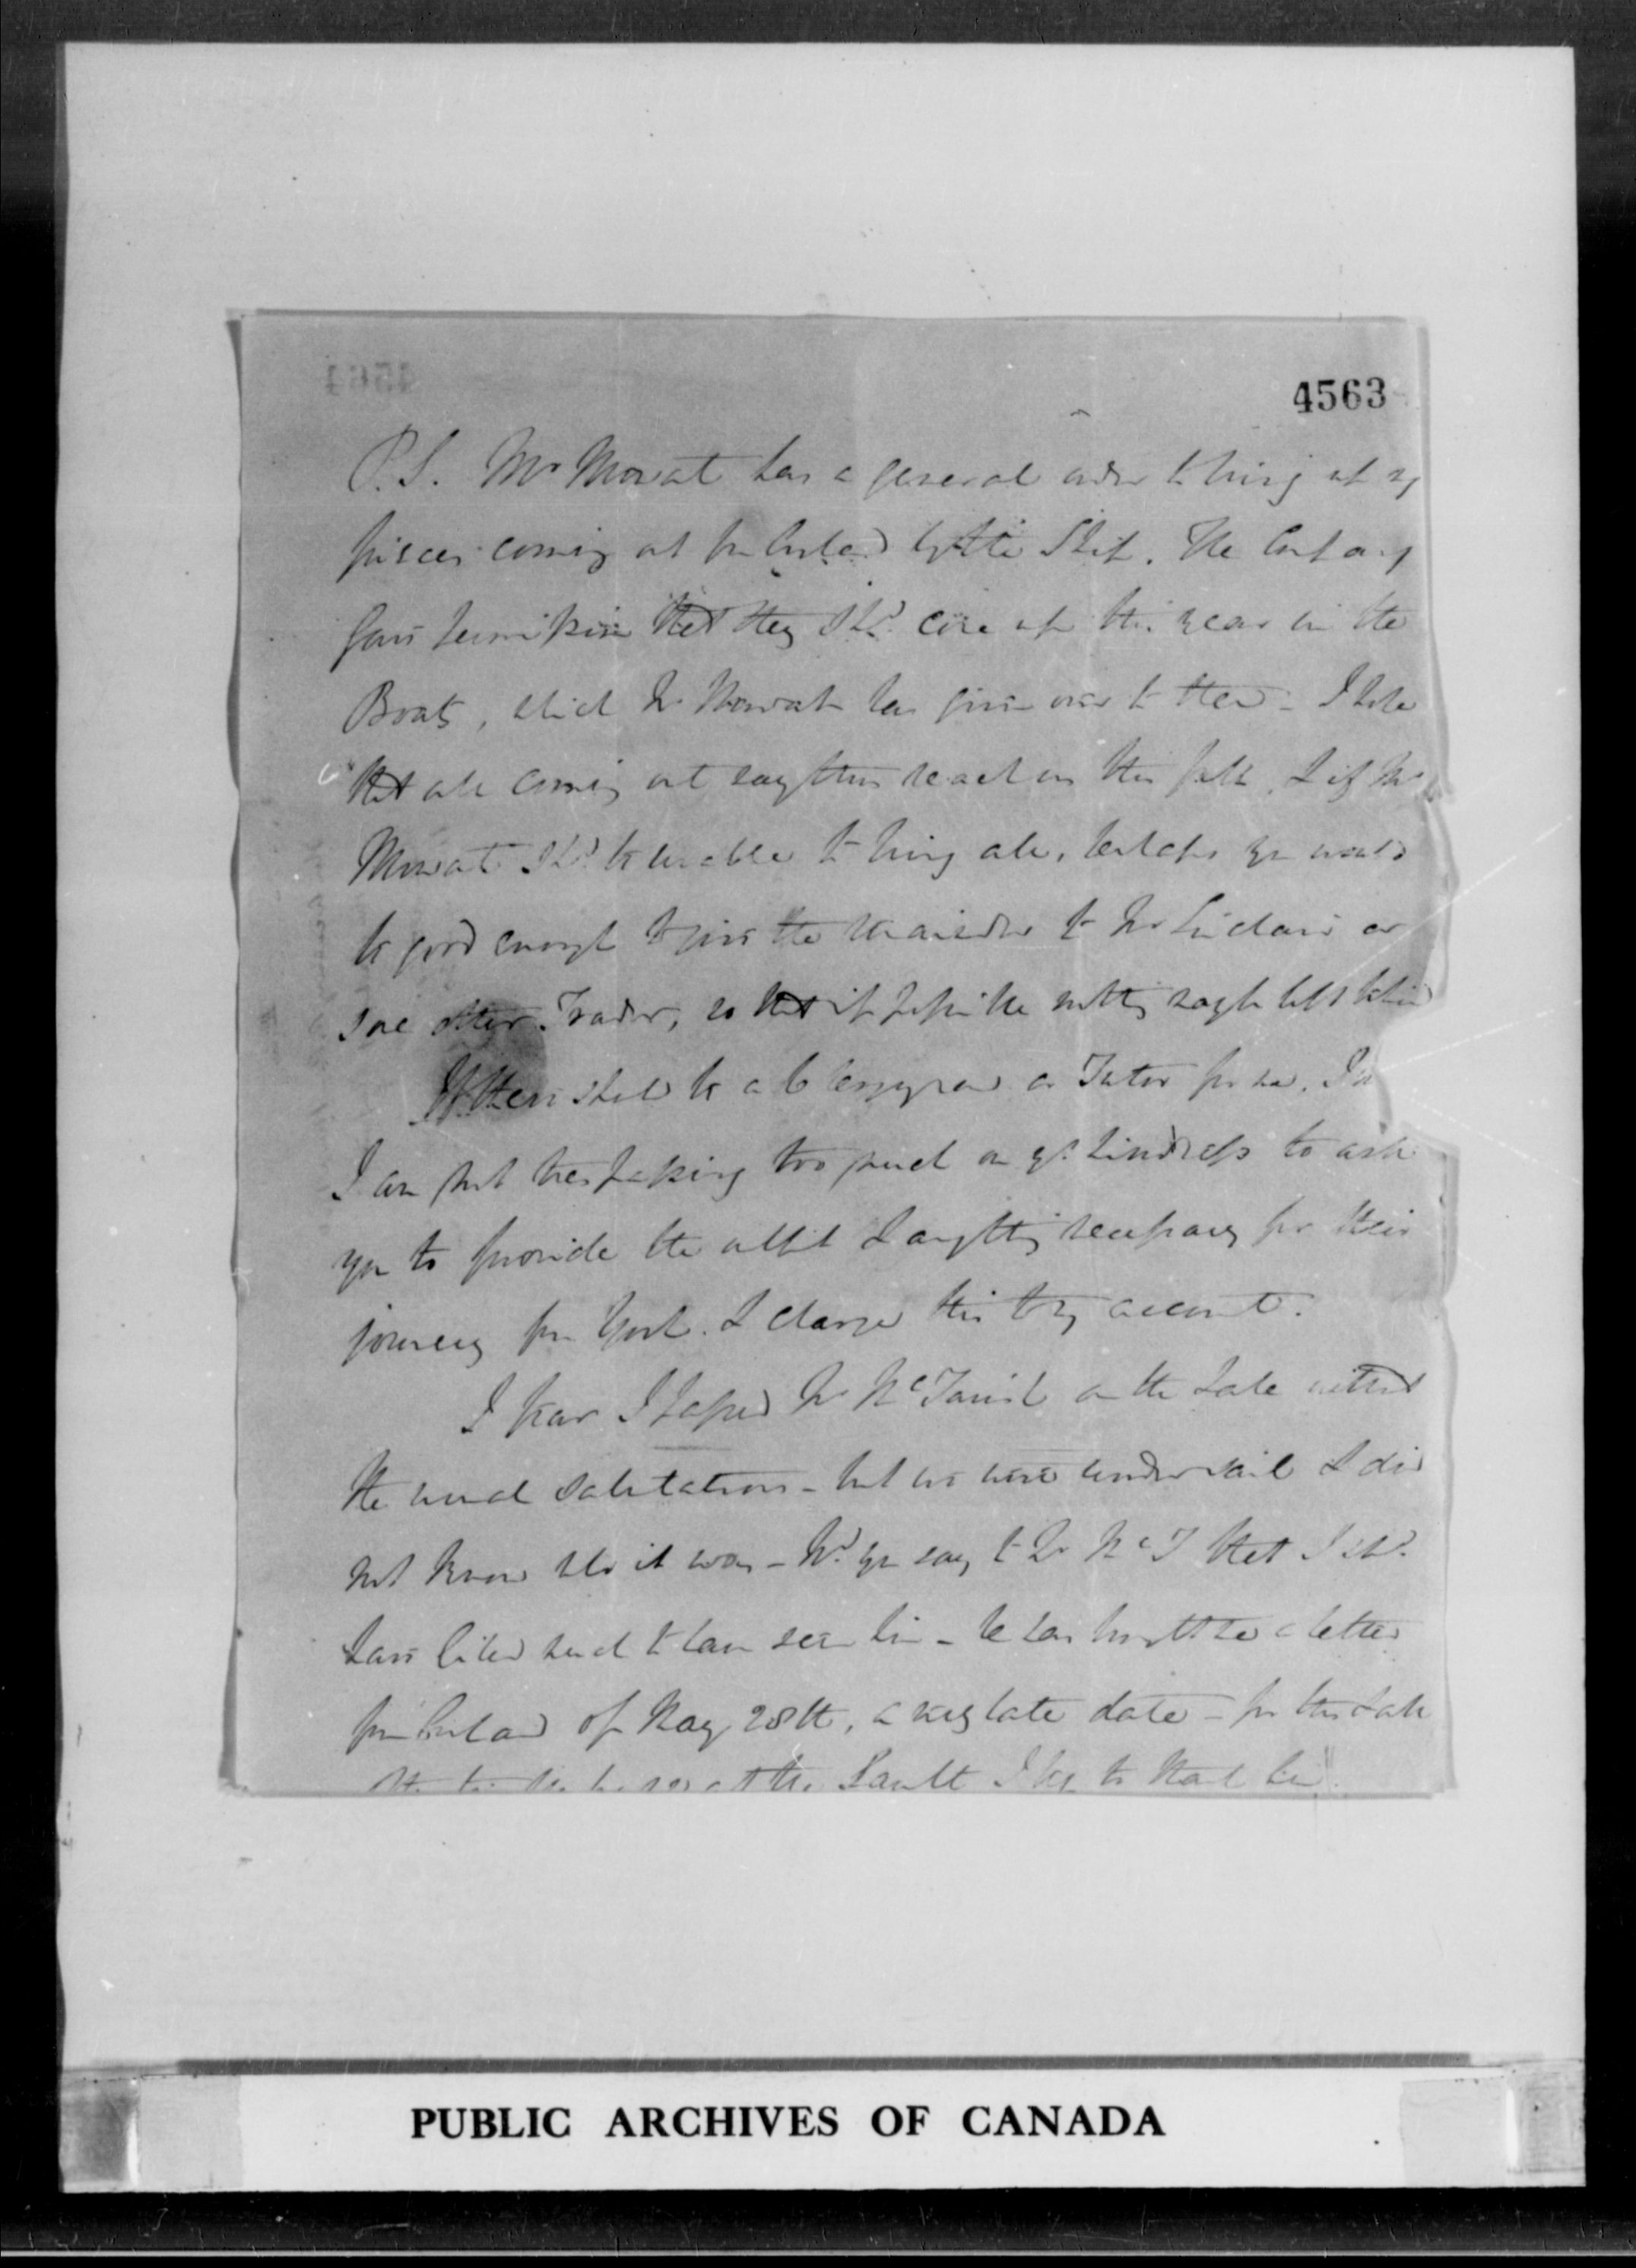 4563
P.S. Mr Mowat has a general order to bring out my
pieces coming out from England by the Ship. The Company
gave permission that they shd. come up this year in the
Boats, which Mr Mowat has given over to them - I hope
that all coming out may thus reach us this fall, & if Mr
Mowat shd. be unable to bring all, perhaps you would
be good enough to give the remainder to Mr Sinclair or
some other Trader, so that if possible nothing may be left behind
If there should be a Clergyman or Tutor for me,
I am not trespassing too much on yr. kindness to ask
you to provide the outfit & anything necessary for their
journey from York. & charge this to my account.
I fear I passed Mr McTavish on the Lake without
the usual salutations - but we were under sail & did
not know who it was - Wd. you say to Mr McT that I shd.
have liked much to have seen him - he has brought me a letter
from England of May 28th, a very late date - for this
the Sault I beg to thank him.
PUBLIC ARCHIVES OF CANADA